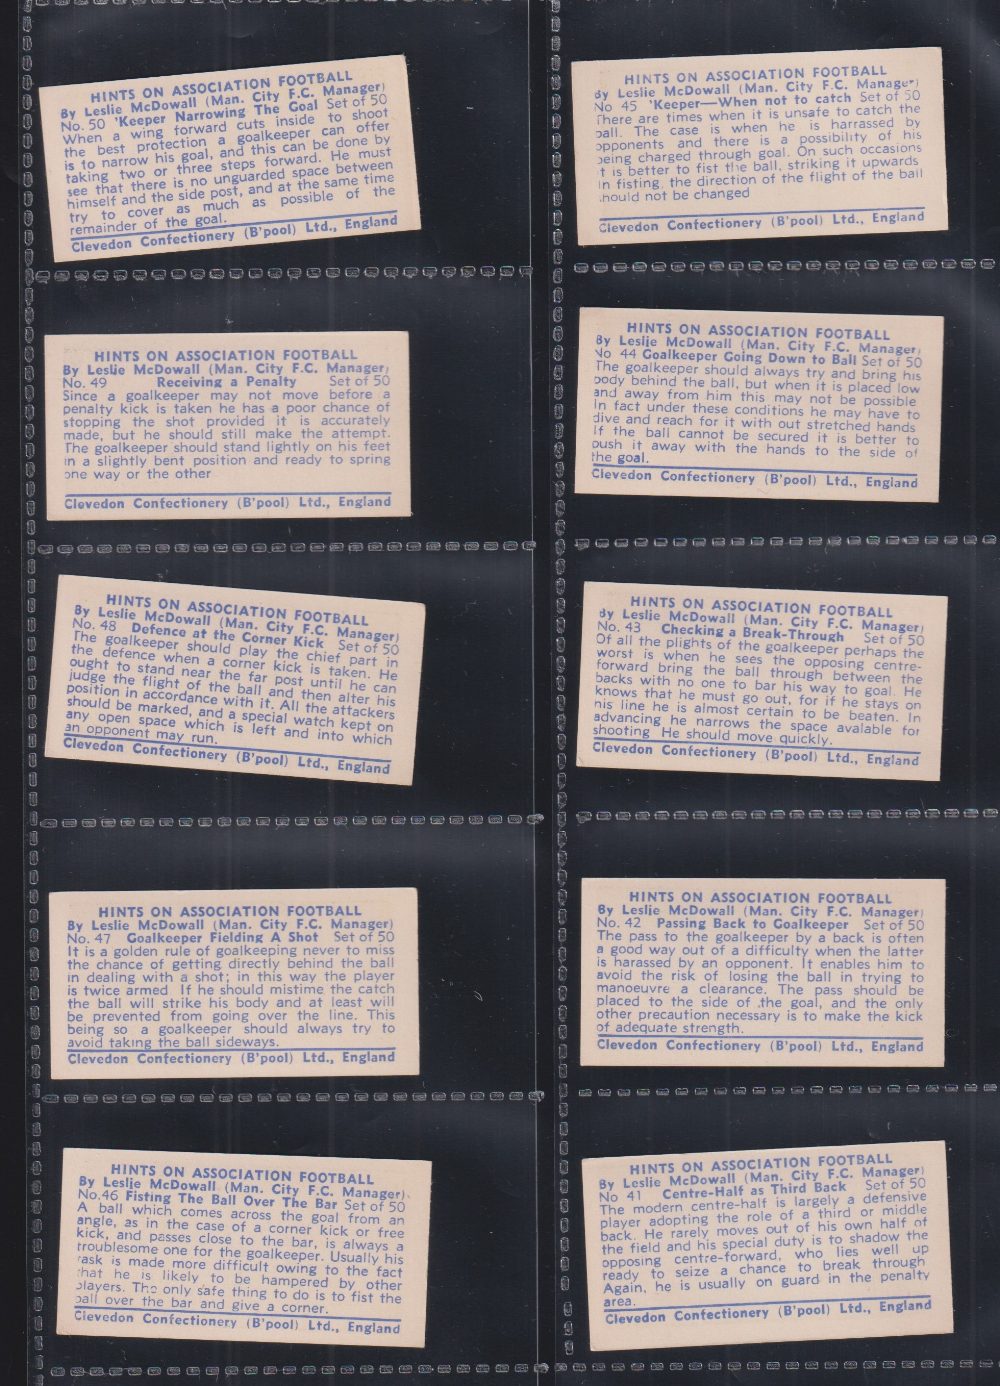 HINTS ON ASSOCIATION FOOTBALL
By Leslie McDowall (Man. City F.C. Manager)
No. 50 'Keeper Narrowing The Goal Set of 50
When a wing forward cuts inside to shoot
the best protection a goalkeeper can offer
is to narrow his goal, and this can be done by
taking two or three steps forward. He must
see that there is no unguarded space between
himself and the side post, and at the same time
try to cover as much as possible of the
remainder of the goal.
Clevedon Confectionery (B'pool) Ltd., England
HINTS ON ASSOCIATION FOOTBALL
By Leslie McDowall (Man. City F.C. Manager)
No. 49 Receiving a Penalty Set of 50
Since a goalkeeper may not move before a
penalty kick is taken he has a poor chance of
stopping the shot provided it is accurately
made, but he should still make the attempt.
The goalkeeper should stand lightly on his feet
in a slightly bent position and ready to spring
one way or the other
Clevedon Confectionery (B'pool) Ltd., England
HINTS ON ASSOCIATION FOOTBALL
By Leslie McDowall (Man. City F.C. Manager)
No. 48 Defence at the Corner Kick Set of 50
The goalkeeper should play the chief part in
the defence when a corner kick is taken. He
ought to stand near the far post until he can
judge the flight of the ball and then alter his
position in accordance with it. All the attackers
should be marked, and a special watch kept on
any open space which is left and into which
an opponent may run.
Clevedon Confectionery (B'pool) Ltd., England
HINTS ON ASSOCIATION FOOTBALL
By Leslie McDowall (Man. City F.C. Manager)
No. 47 Goalkeeper Fielding A Shot Set of 50
It is a golden rule of goalkeeping never to miss
the chance of getting directly behind the ball
in dealing with a shot; in this way the player
is twice armed If he should mistime the catch
the ball will strike his body and at least will
be prevented from going over the line. This
being so a goalkeeper should always try to
avoid taking the ball sideways.
Clevedon Confectionery (B'pool) Ltd., England
HINTS ON ASSOCIATION FOOTBALL
By Leslie McDowall (Man. City F.C. Manager).
No.46 Fisting The Ball Over The Bar Set of 50
A ball which comes across the goal from an
angle, as in the case of a corner kick or free
kick, and passes close to the bar, is always a
troublesome one for the goalkeeper. Usually his
task is made more difficult owing to the fact
that he is likely to be hampered by other
players. The only safe thing to do is to fist the
ball over the bar and give a corner.
Clevedon Confectionery (B'pool) Ltd., England
HINTS ON ASSOCIATION FOOTBALL
By Leslie McDowall (Man. City F.C. Manager)
No 45 'Keeper—When not to catch Set of 50
There are times when it is unsafe to catch the
ball. The case is when he is harrassed by
opponents and there is a possibility of his
being charged through goal. On such occasions
it is better to fist the ball, striking it upwards
In fisting, the direction of the flight of the ball
should not be changed
Clevedon Confectionery (B'pool) Ltd., England
HINTS ON ASSOCIATION FOOTBALL
By Leslie McDowall (Man. City F.C. Manager)
No 44 Goalkeeper Going Down to Ball Set of 50
The goalkeeper should always try and bring his
body behind the ball, but when it is placed low
and away from him this may not be possible
In fact under these conditions he may have to
dive and reach for it with out stretched hands
If the ball cannot be secured it is better to
push it away with the hands to the side of
the goal.
Clevedon Confectionery (B'pool) Ltd., England
HINTS ON ASSOCIATION FOOTBALL
By Leslie McDowall (Man. City F.C. Manager)
No. 43 Checking a Break-Through Set of 50
Of all the plights of the goalkeeper perhaps the
worst is when he sees the opposing centre-
forward bring the ball through between the
backs with no one to bar his way to goal. He
knows that he must go out, for if he stays on
his line he is almost certain to be beaten. In
advancing he narrows the space avalable for
shooting He should move quickly.
Clevedon Confectionery (B'pool) Ltd., England
HINTS ON ASSOCIATION FOOTBALL
By Leslie McDowall (Man. City F.C. Manager)
No. 42 Passing Back to Goalkeeper Set of 50
The pass to the goalkeeper by a back is often
a good way out of a difficulty when the latter
is harassed by an opponent. It enables him to
avoid the risk of losing the ball in trying to
manoeuvre a clearance. The pass should be
placed to the side of .the goal, and the only
other precaution necessary is to make the kick
of adequate strength.
Clevedon Confectionery (B'pool) Ltd., England
HINTS ON ASSOCIATION FOOTBALL
By Leslie McDowall (Man. City F.C. Manager)
No 41 Centre-Half as Third Back Set of 50
The modern centre-half is largely a defensive
player adopting the role of a third or middle
back. He rarely moves out of his own half of
the field and his special duty is to shadow the
opposing centre-forward, who lies well up
ready to seize a chance to break through
Again, he is usually on guard in the penalty
area.
Clevedon Confectionery (B'pool) Ltd., England